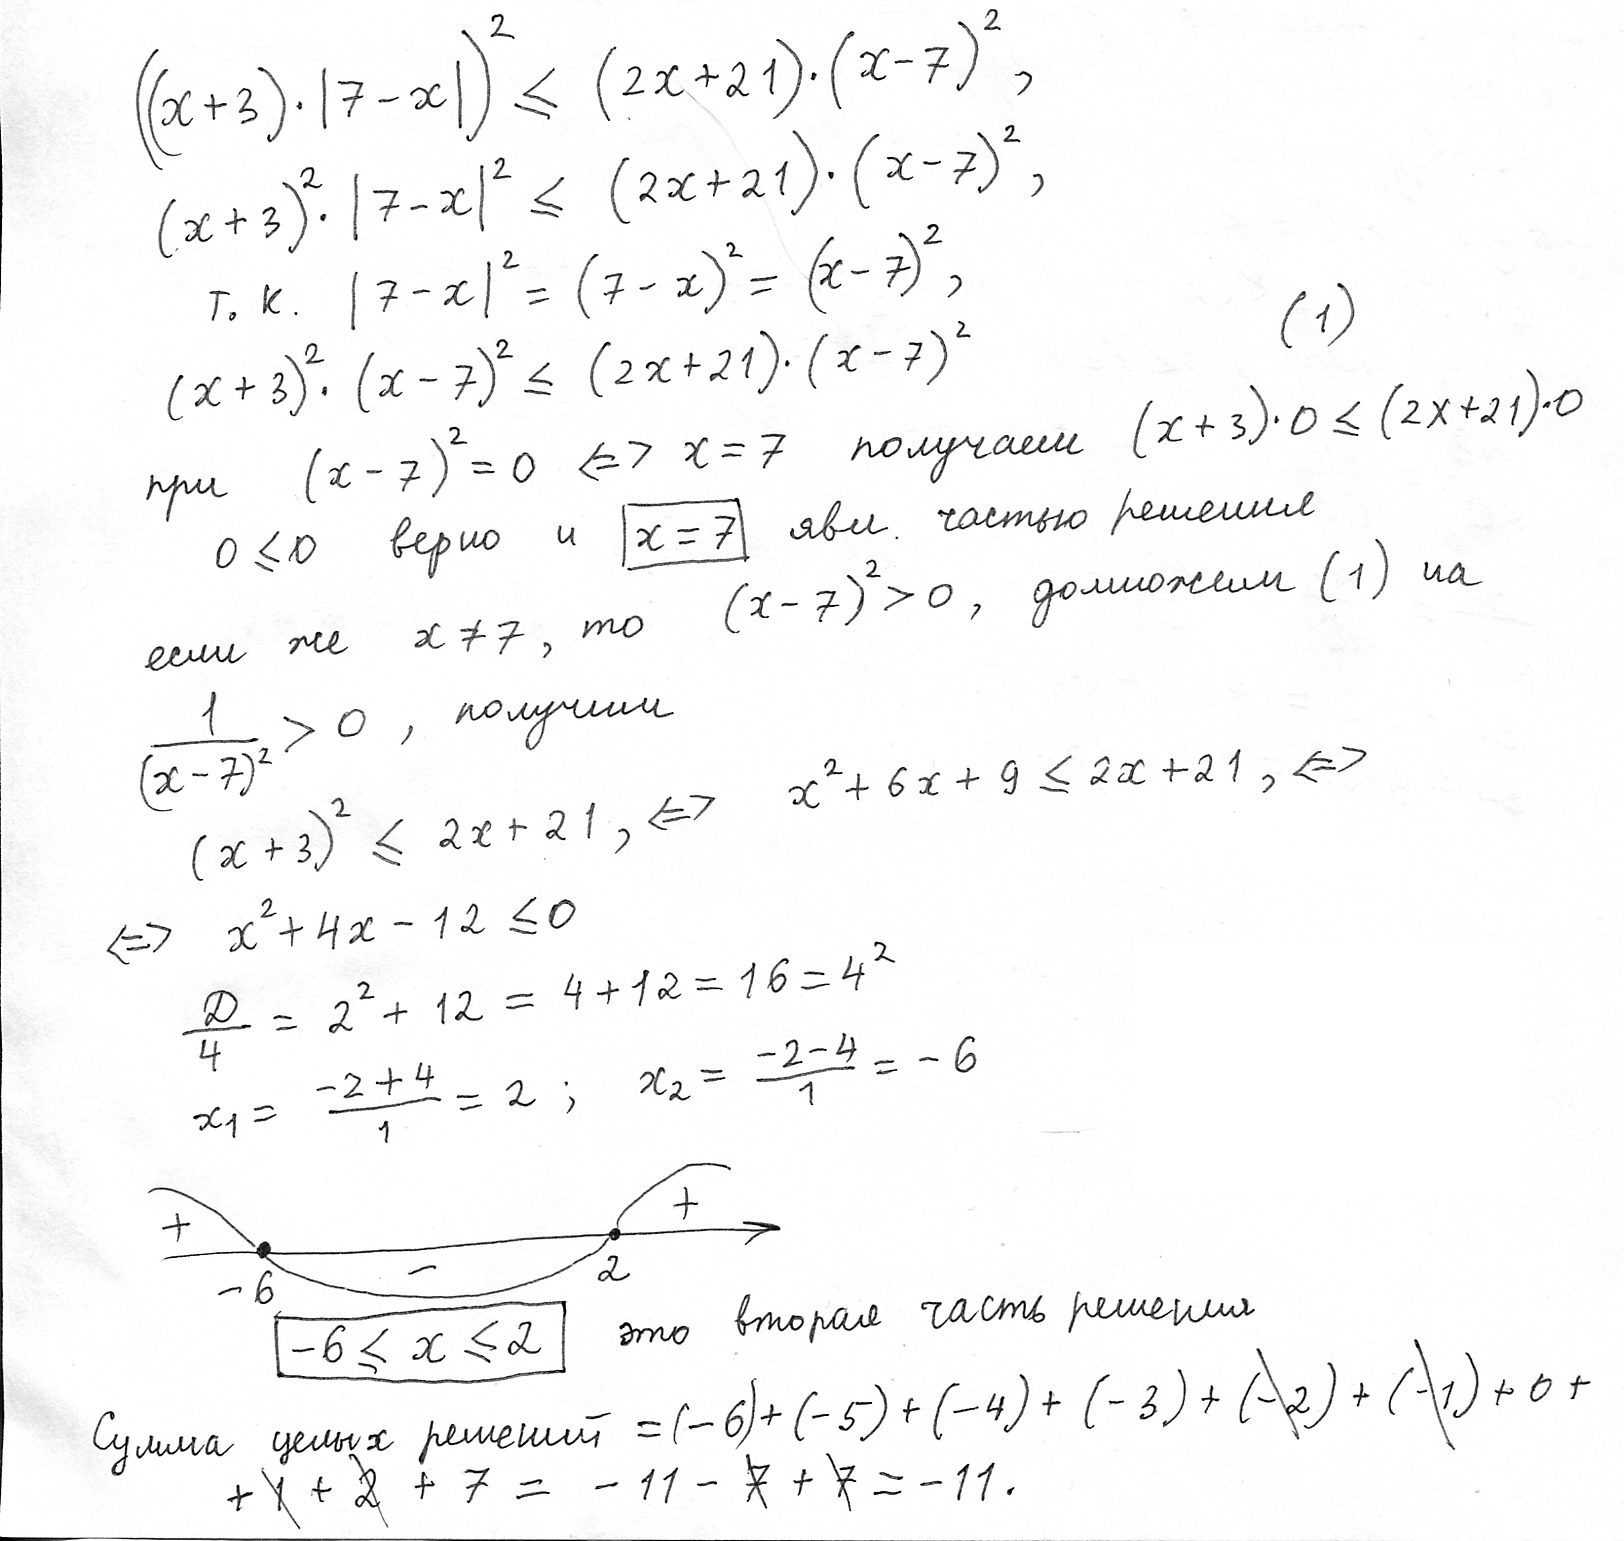 ((x+3)·|7-x|)² ≤ (2x+21)·(x-7)²,
(x+3)²·|7-x|² ≤ (2x+21)·(x-7)²,
т. к. |7-x|² = (7-x)² = (x-7)²,
(x+3)²·(x-7)² ≤ (2x+21)·(x-7)² (1)
при (x-7)² = 0 <=> x = 7 получаем (x+3)·0 ≤ (2x+21)·0
0 ≤ 0 верно и x = 7 явл. частью решения
если же x ≠ 7, то (x-7)² > 0, домножем (1) на
1/(x-7)² > 0, получим
(x+3)² ≤ 2x+21, <=> x²+6x+9 ≤ 2x+21, <=>
<=> x²+4x-12 ≤ 0
D/4 = 2²+12 = 4+12 = 16 = 4²
x₁ = (-2+4)/1 = 2; x₂ = (-2-4)/1 = -6
+ - +
-6 2
-6 ≤ x ≤ 2 это вторая часть решения
Сумма целых решений = (-6)+(-5)+(-4)+(-3)+(-2)+(-1)+0+
+1+2+7 = -11-7+7 = -11.